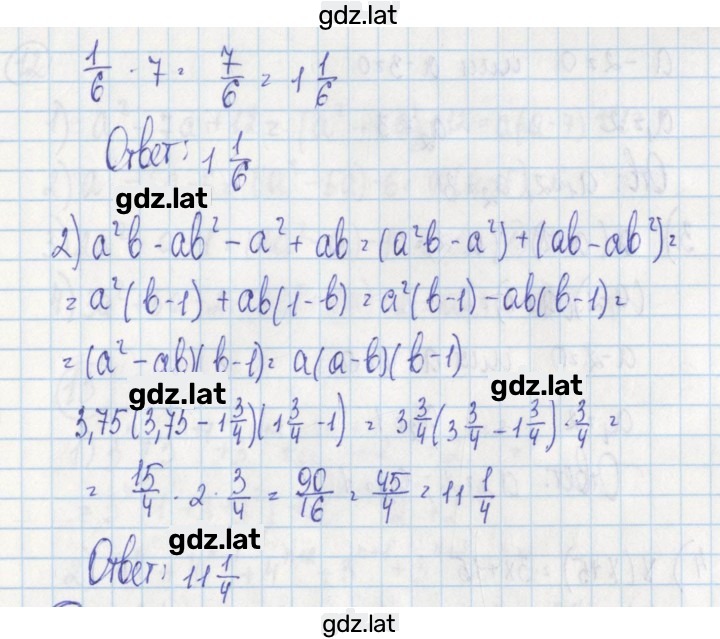 gdz.lat
1/6 · 7 = 7/6 = 1 1/6
Ответ: 1 1/6
gdz.lat
2) a²b - ab² - a² + ab = (a²b - a²) + (ab - ab²) =
= a²(b-1) + ab(1-b) = a²(b-1) - ab(b-1) =
= (a² - ab)(b-1) = a(a-b)(b-1)
gdz.lat
gdz.lat
3,75(3,75 - 1 3/4)(1 3/4 - 1) = 3 3/4(3 3/4 - 1 3/4) · 3/4 =
= 15/4 · 2 · 3/4 = 90/16 = 45/4 = 11 1/4
gdz.lat
Ответ: 11 1/4
gdz.lat